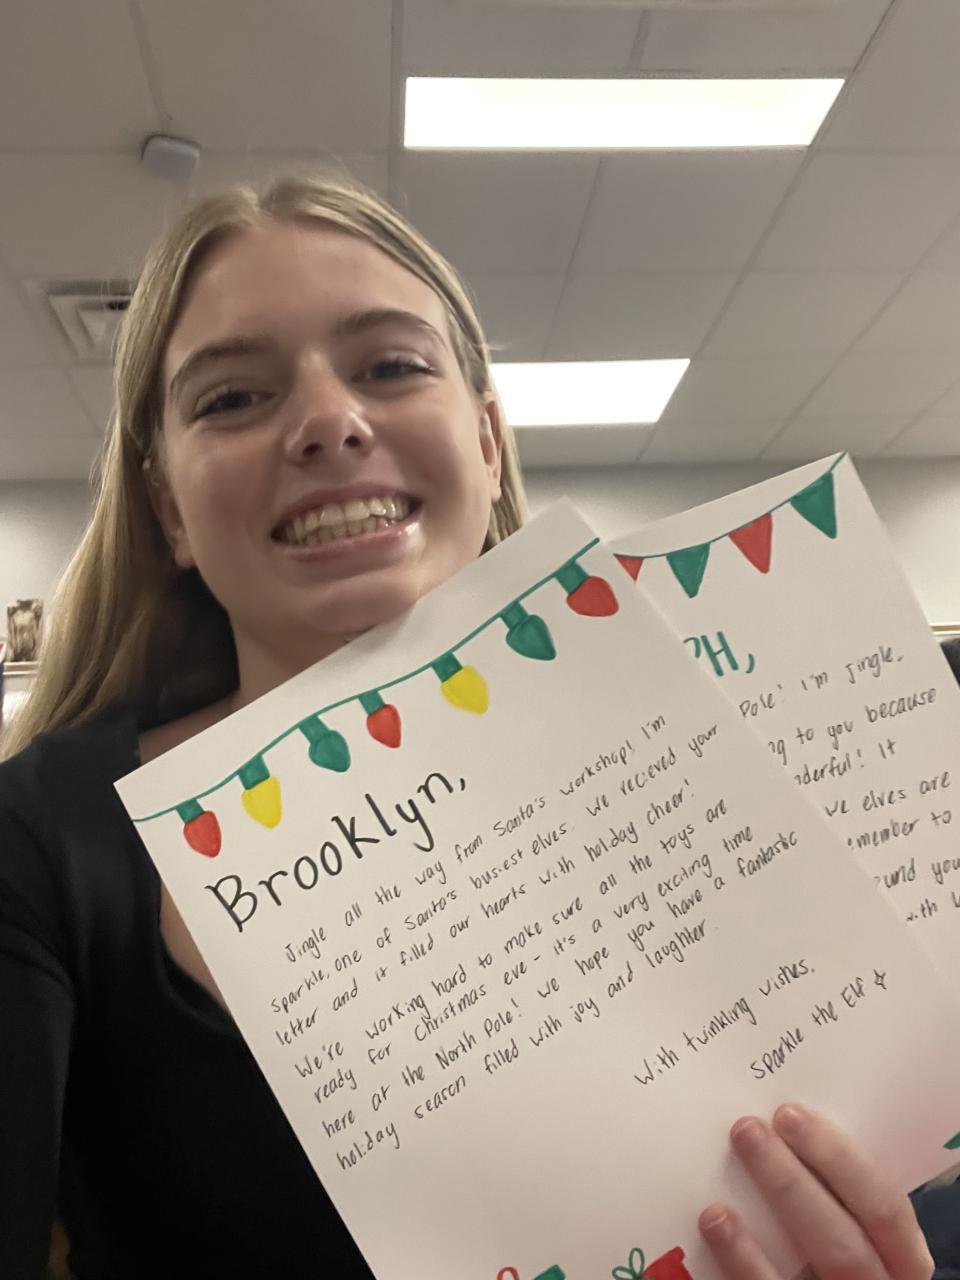 Brooklyn,
Jingle all the way from Santa's workshop! I'm
Sparkle, one of Santa's busiest elves. We recieved your
letter and it filled our hearts with holiday cheer!
We're working hard to make sure all the toys are
ready for Christmas eve - it's a very exciting time
here at the North Pole! We hope you have a fantastic
holiday season filled with joy and laughter.
With twinkling wishes,
Sparkle the Elf
PH,
Pole! I'm Jingle,
to you because
It
we elves are
to
you